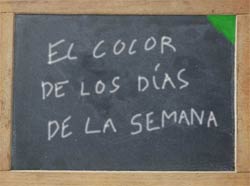 EL COLOR
DE LOS DÍAS
DE LA SEMANA